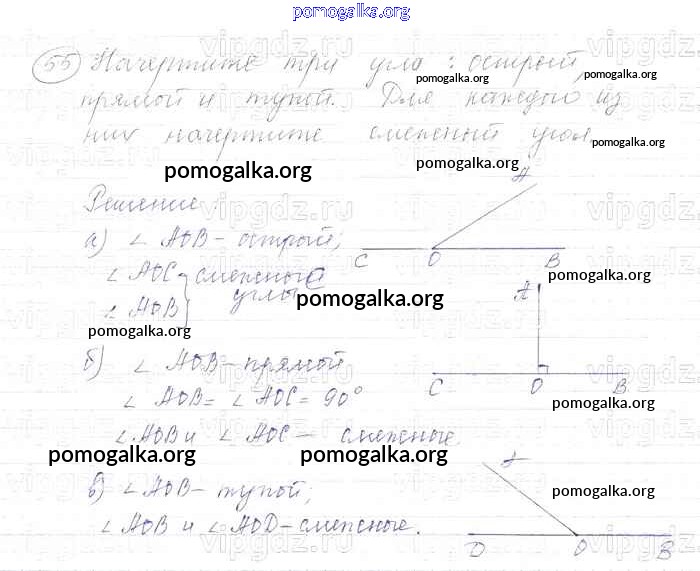 pomogalka.org
55 Начертите три угла: острый,
прямой и тупой. Для каждого из
них начертите смежный угол.
pomogalka.org
pomogalka.org
pomogalka.org
pomogalka.org
pomogalka.org
Решение:
A
а) ∠ AOB - острый;
C O B
∠ AOC } смежные
∠ AOB } углы
pomogalka.org
A
pomogalka.org
pomogalka.org
б) ∠ AOB - прямой
C O B
∠ AOB = ∠ AOC = 90°
pomogalka.org
∠ AOB и ∠ AOC - смежные.
pomogalka.org
pomogalka.org
A
в) ∠ AOB - тупой;
pomogalka.org
∠ AOB и ∠ AOD - смежные.
D O B
vipgdz.ru